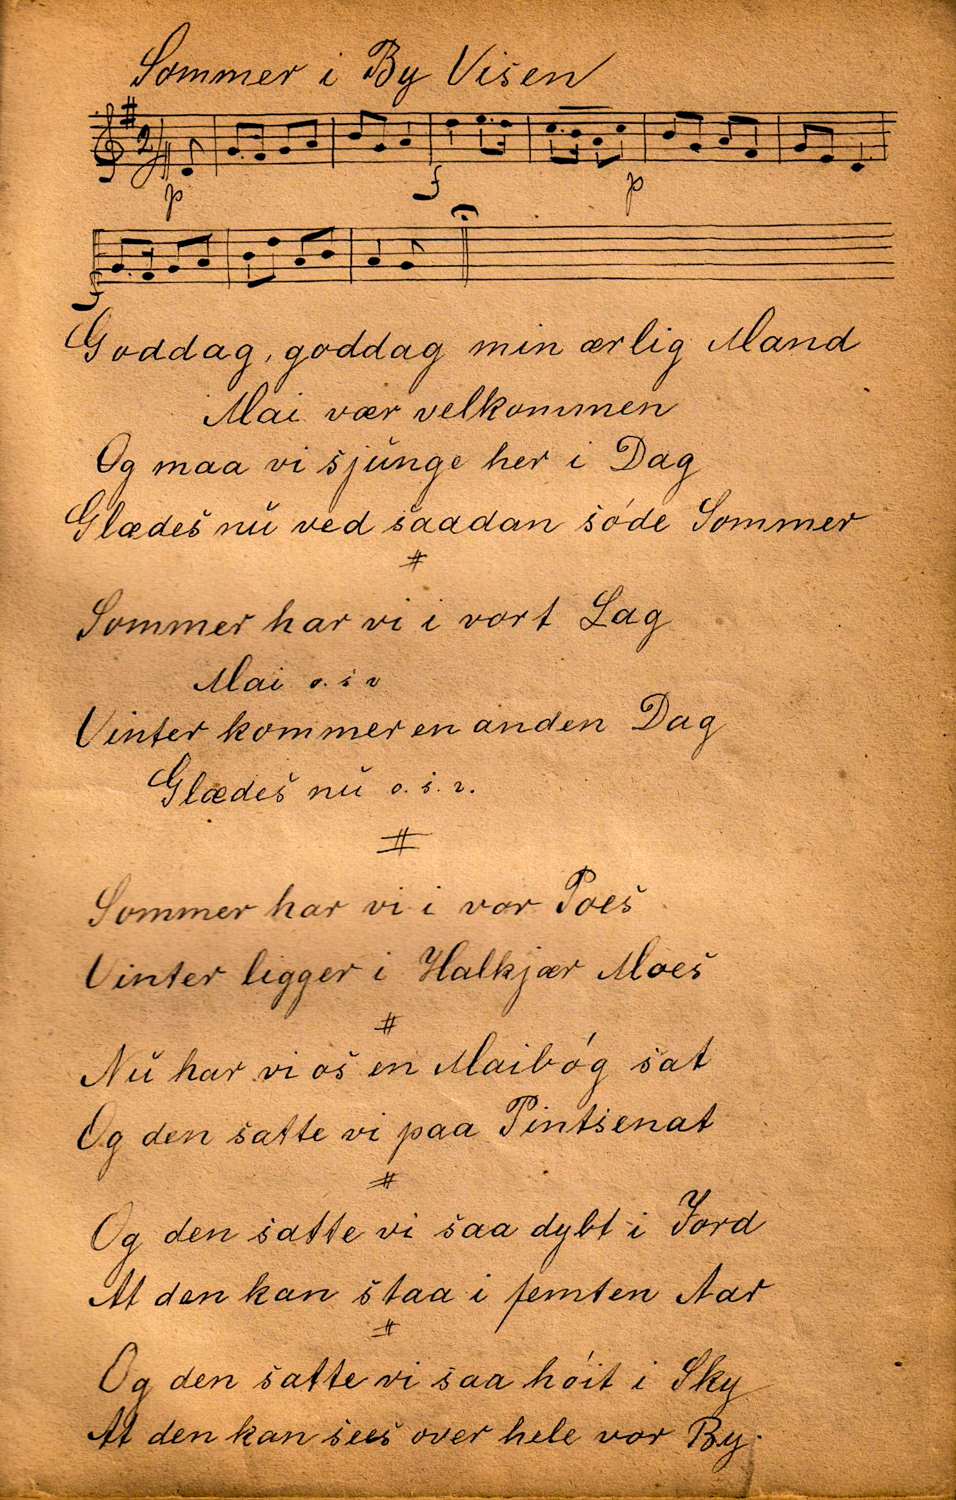 Sommer i By Visen
p f p
f
Goddag, goddag min ærlig Mand
Mai vær velkommen
Og maa vi sjŭnge her i Dag
Glædes nŭ ved saadan sóde Sommer
Sommer har vi i vort Lag
Mai o. s v
Vinter kommer en anden Dag
Glædes nŭ o. s. v.
Sommer har vi i vor Poes
Vinter ligger i Halkjær Moes
Nŭ har vi os en Maibóg sat
Og den satte vi paa Pintsenat
Og den satte vi saa dybt i Jord
At den kan staa i femten Aar
Og den satte vi saa hóit i Sky
At den kan sees over hele vor By.